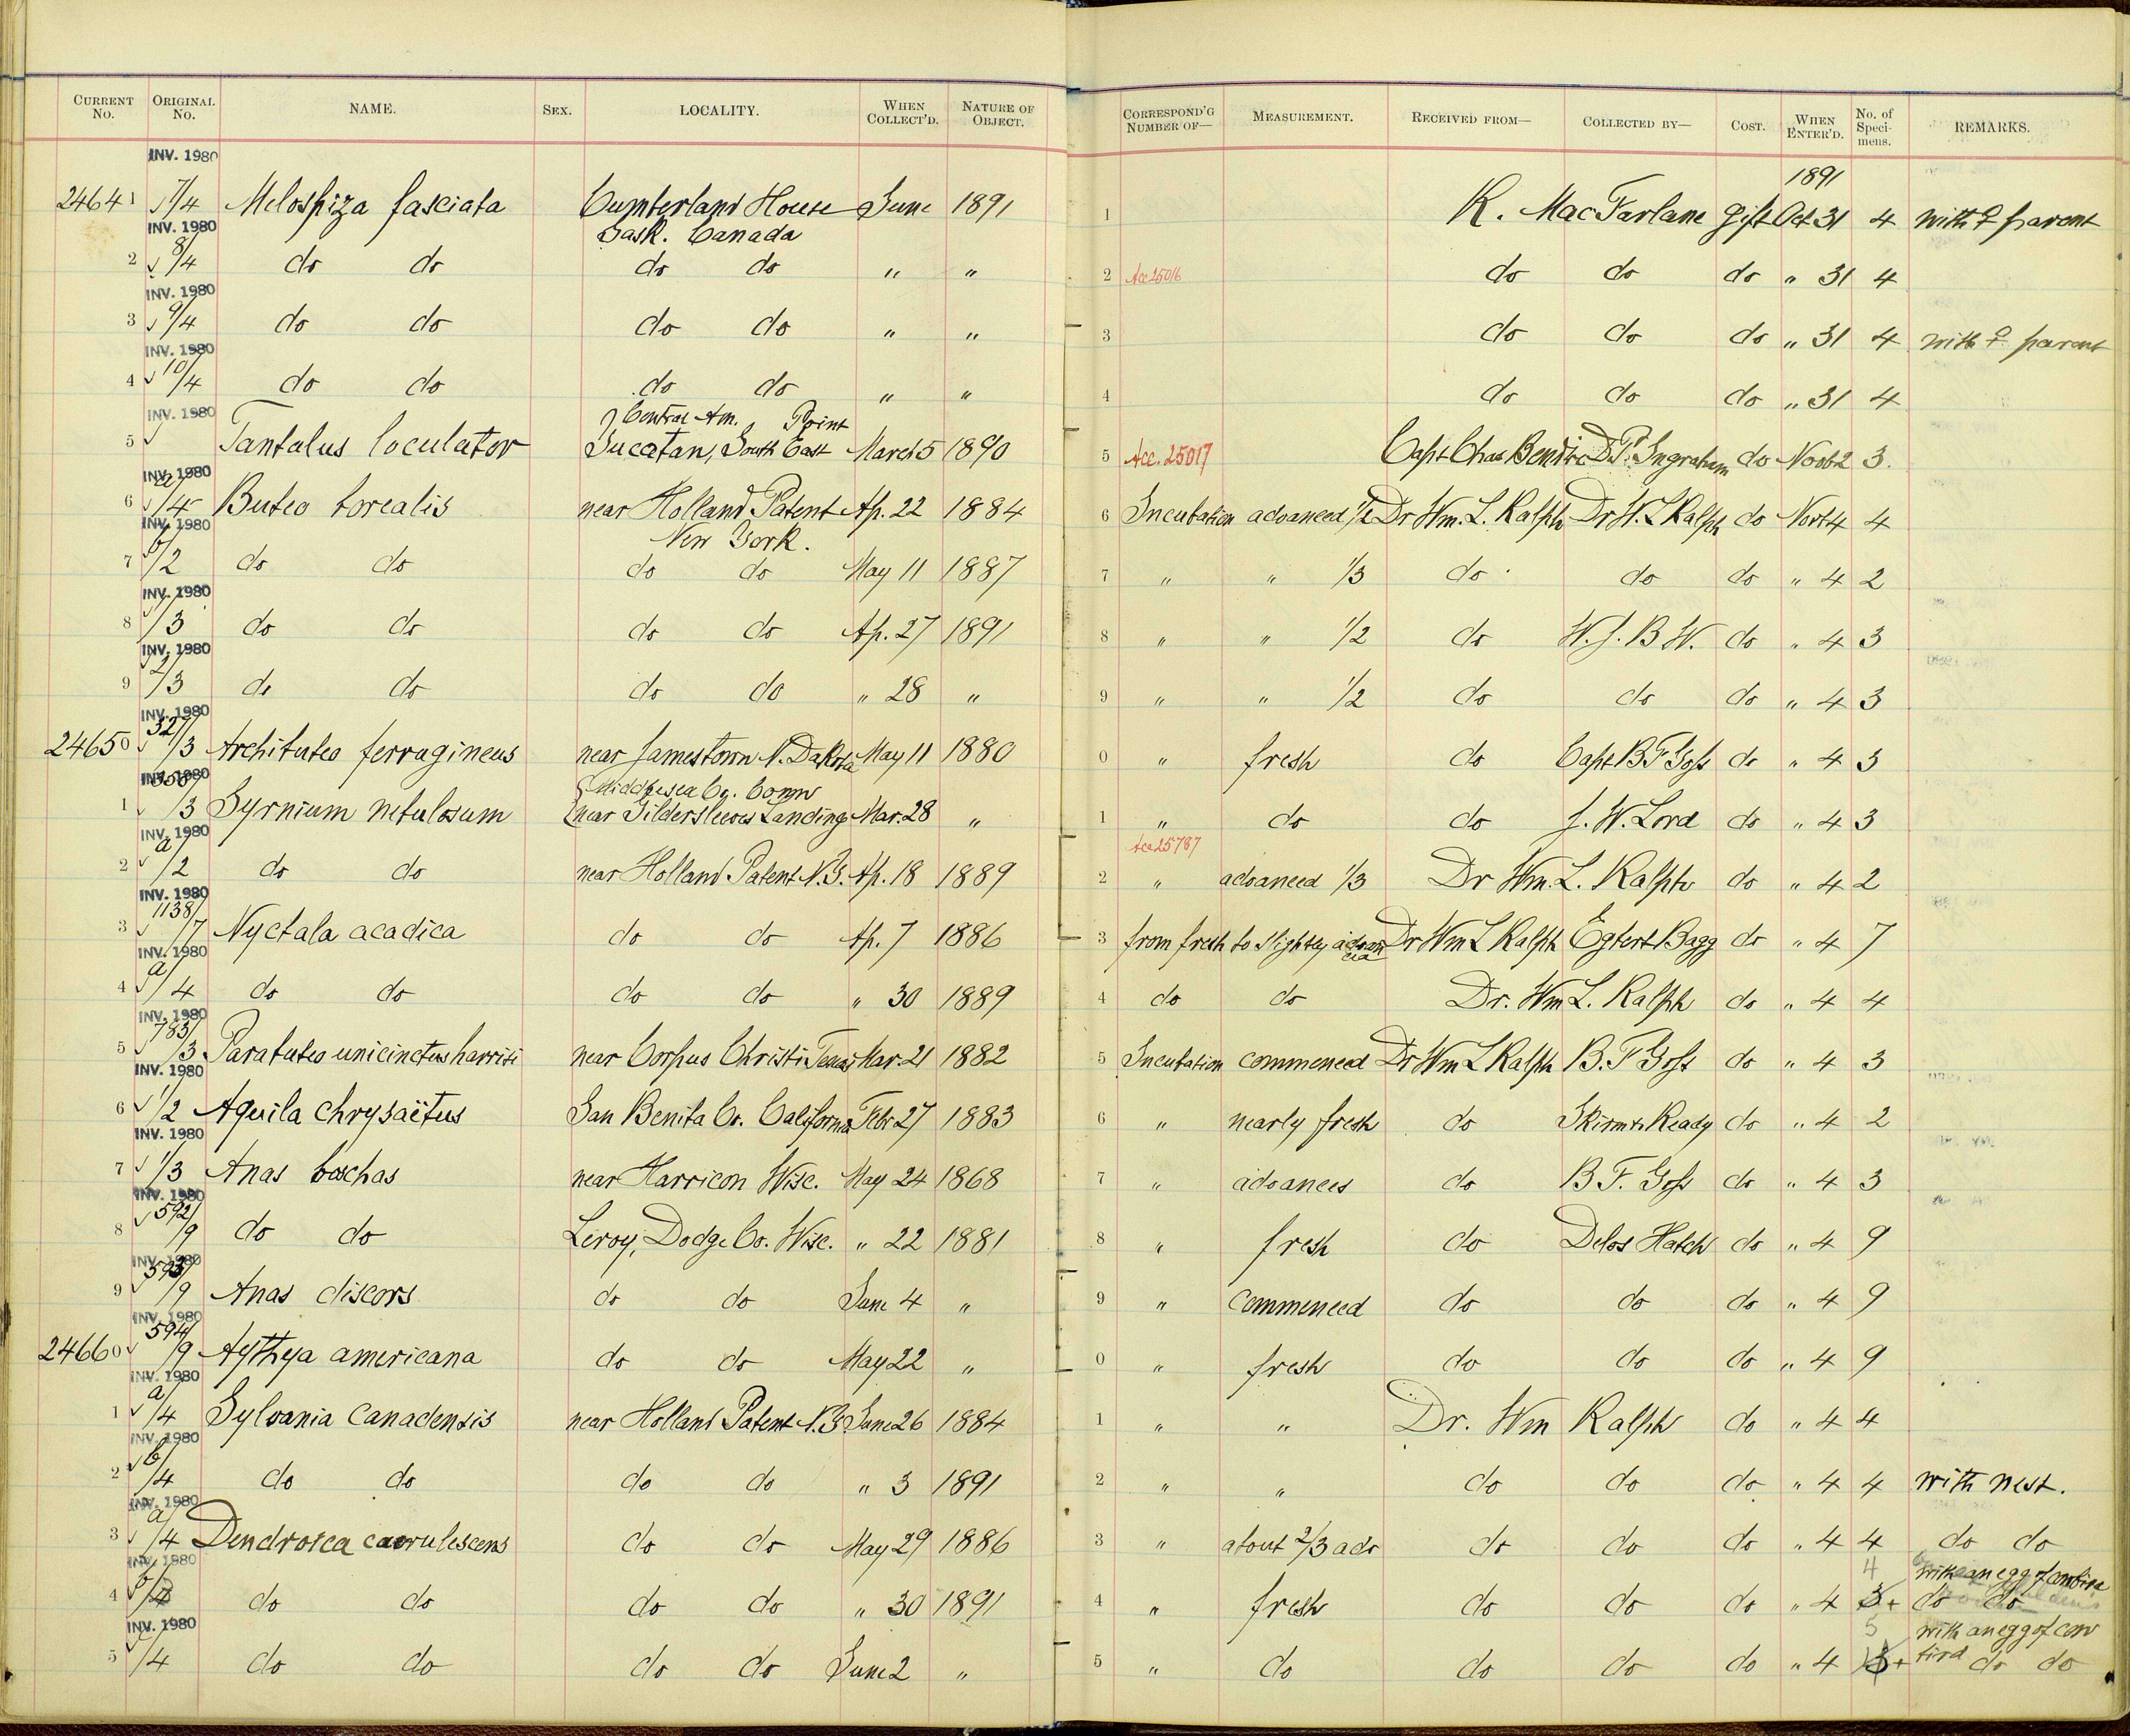 CURRENT No. ORIGINAL No. NAME. SEX. LOCALITY. WHEN COLLECT'D. NATURE OF OBJECT. CORRESPOND'G NUMBER OF— MEASUREMENT. RECEIVED FROM— COLLECTED BY— COST. WHEN ENTER'D. No. of Specimens. REMARKS.
INV. 1980
1891
24641 7/4 Melospiza fasciata Cumberland House June 1891 1 R. MacFarlane Gift Oct 31 4 with ♀ parent
INV. 1980 Sask. Canada
2 8/4 do do do do " " 2 Acc 25016 do do do " 31 4
INV. 1980
3 9/4 do do do do " " 3 do do do " 31 4 with ♀ parent
INV. 1980
4 10/4 do do do do " " 4 do do do " 31 4
INV. 1980 Central Am. Point
5 Tantalus loculator Yucatan, South East March 5 1890 5 Acc. 25017 Capt Chas Bendire D.P. Ingraham do Nov 2 3.
INV. 1980
6 a/4 Buteo borealis near Holland Patent Ap. 22 1884 6 Incubation advanced 1/2 Dr Wm. L. Ralph Dr W. L Ralph do Nov 4 4
INV. 1980 New York.
7 b/2 do do do do May 11 1887 7 " " 1/3 do do do " 4 2
INV. 1980
8 1/3 do do do do Ap. 27 1891 8 " " 1/2 do W. J. B W. do " 4 3
INV. 1980
9 2/3 do do do do " 28 " 9 " " 1/2 do do do " 4 3
INV. 1980
24650 327/3 Archibuteo ferrugineus near Jamestown N. Dakota May 11 1880 0 " fresh do Capt B F Goss do " 4 3
INV. 1980 Middlesex Co. Conn
1 /3 Syrnium nebulosum near Gildersleeves Landing Mar. 28 " 1 " do do J. W. Lord do " 4 3
INV. 1980 Acc 25787
2 a/2 do do near Holland Patent N.Y. Ap. 18 1889 2 " advanced 1/3 Dr Wm. L. Ralph do " 4 2
INV. 1980
3 1138/7 Nyctala acadica do do Ap. 7 1886 3 from fresh to slightly advanced Dr Wm L Ralph Egbert Bagg do " 4 7
INV. 1980
4 a/4 do do do do " 30 1889 4 do do Dr. Wm L. Ralph do " 4 4
INV. 1980
5 783/3 Parabuteo unicinctus harrisi near Corpus Christi Texas Mar. 21 1882 5 Incubation commenced Dr Wm L Ralph B. F Goss do " 4 3
INV. 1980
6 1/2 Aquila chrysaëtus San Benita Co. California Febr 27 1883 6 " nearly fresh do Skirm & Ready do " 4 2
INV. 1980
7 1/3 Anas boschas near Harricon Wisc. May 24 1868 7 " advanced do B F. Goss do " 4 3
INV. 1980
8 592/9 do do Leroy, Dodge Co. Wisc. " 22 1881 8 " fresh do Delos Hatch do " 4 9
INV. 1980
9 593/9 Anas discors do do June 4 " 9 " commenced do do do " 4 9
INV. 1980
24660 594/9 Aythya americana do do May 22 " 0 " fresh do do do " 4 9
INV. 1980
1 a/4 Sylvania canadensis near Holland Patent N.Y June 26 1884 1 " " Dr. Wm Ralph do " 4 4
INV. 1980
2 b/4 do do do do " 3 1891 2 " " do do do " 4 4 with nest.
INV. 1980
3 a/4 Dendroica caerulescens do do May 29 1886 3 " about 2/3 adv do do do " 4 4 do do
INV. 1980 4 with an egg of cowbird
4 b/4 do do do do " 30 1891 4 " fresh do do do " 4 3+ do do
INV. 1980 5 with an egg of cow
5 /4 do do do do June 2 " 5 " do do do do " 4 + bird do do